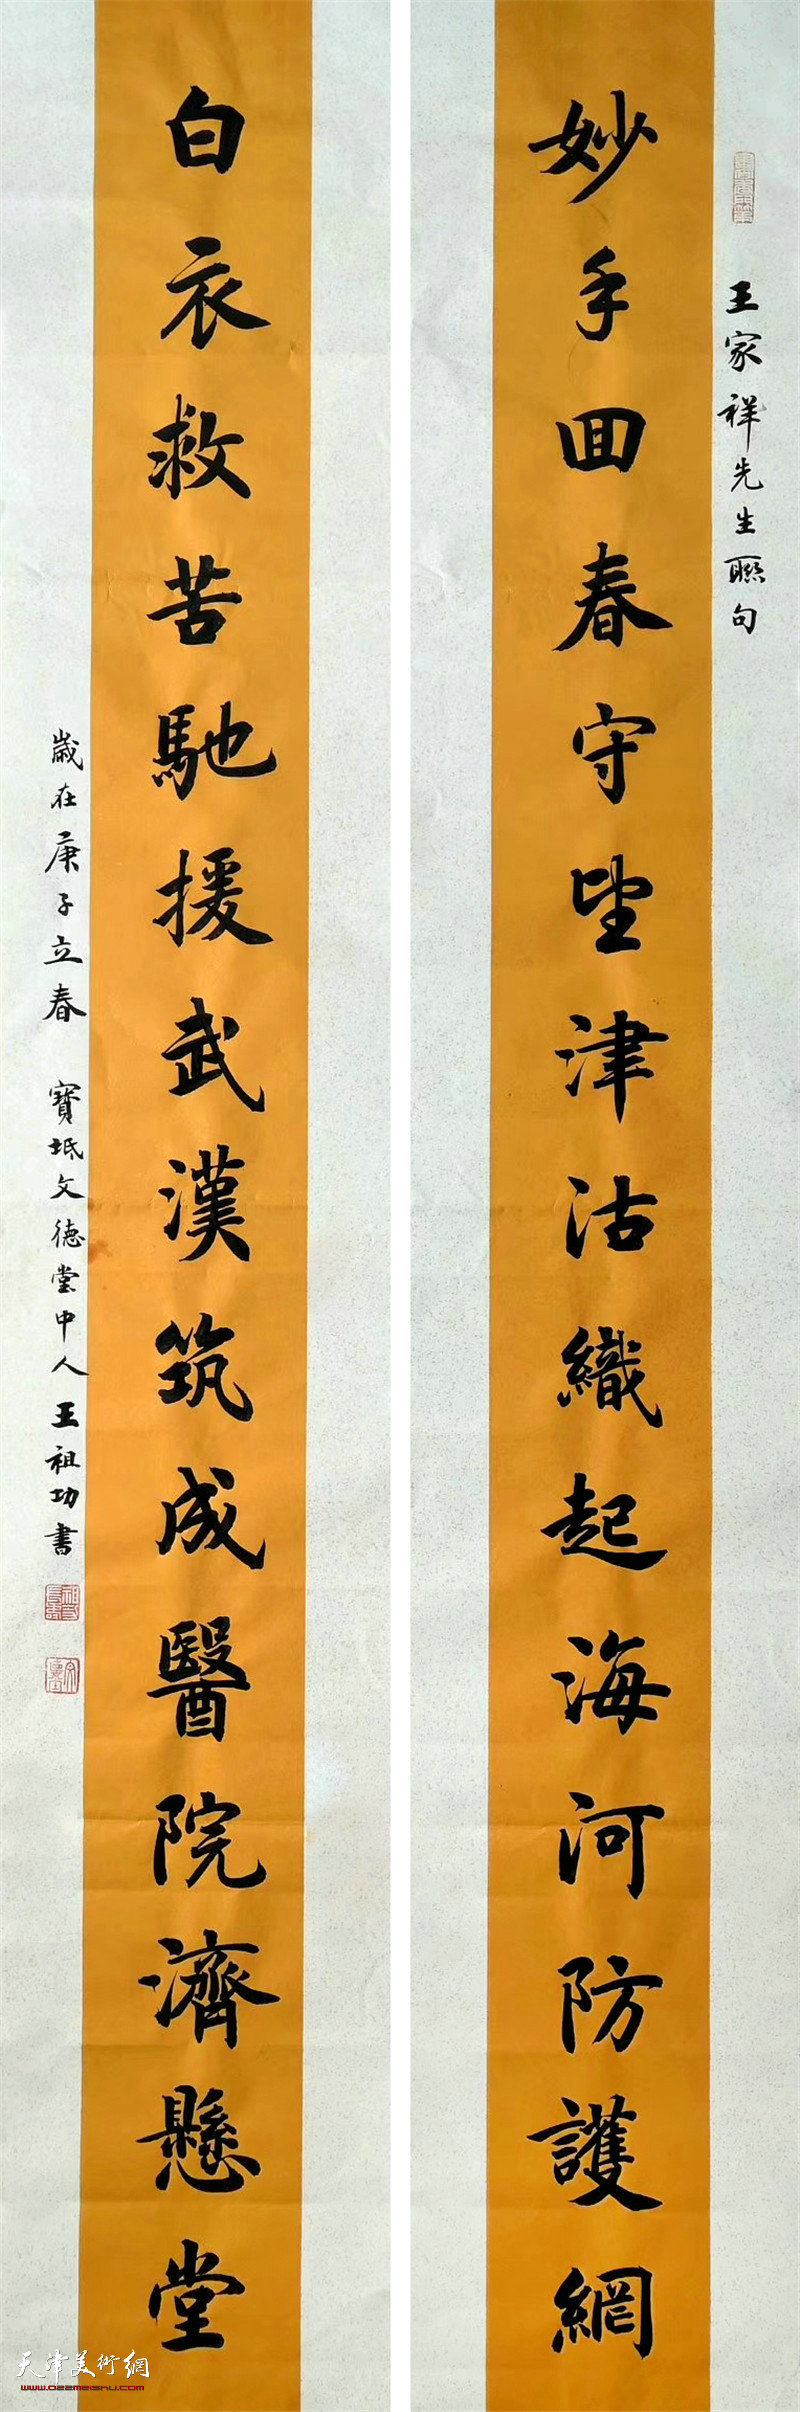 王家祥先生聯句
妙手回春守望津沽織起海河防護網
白衣救苦馳援武漢筑成醫院濟懸堂
歲在庚子立春 寶坻文德堂中人王祖功書
天津美術網
www.022meishu.com